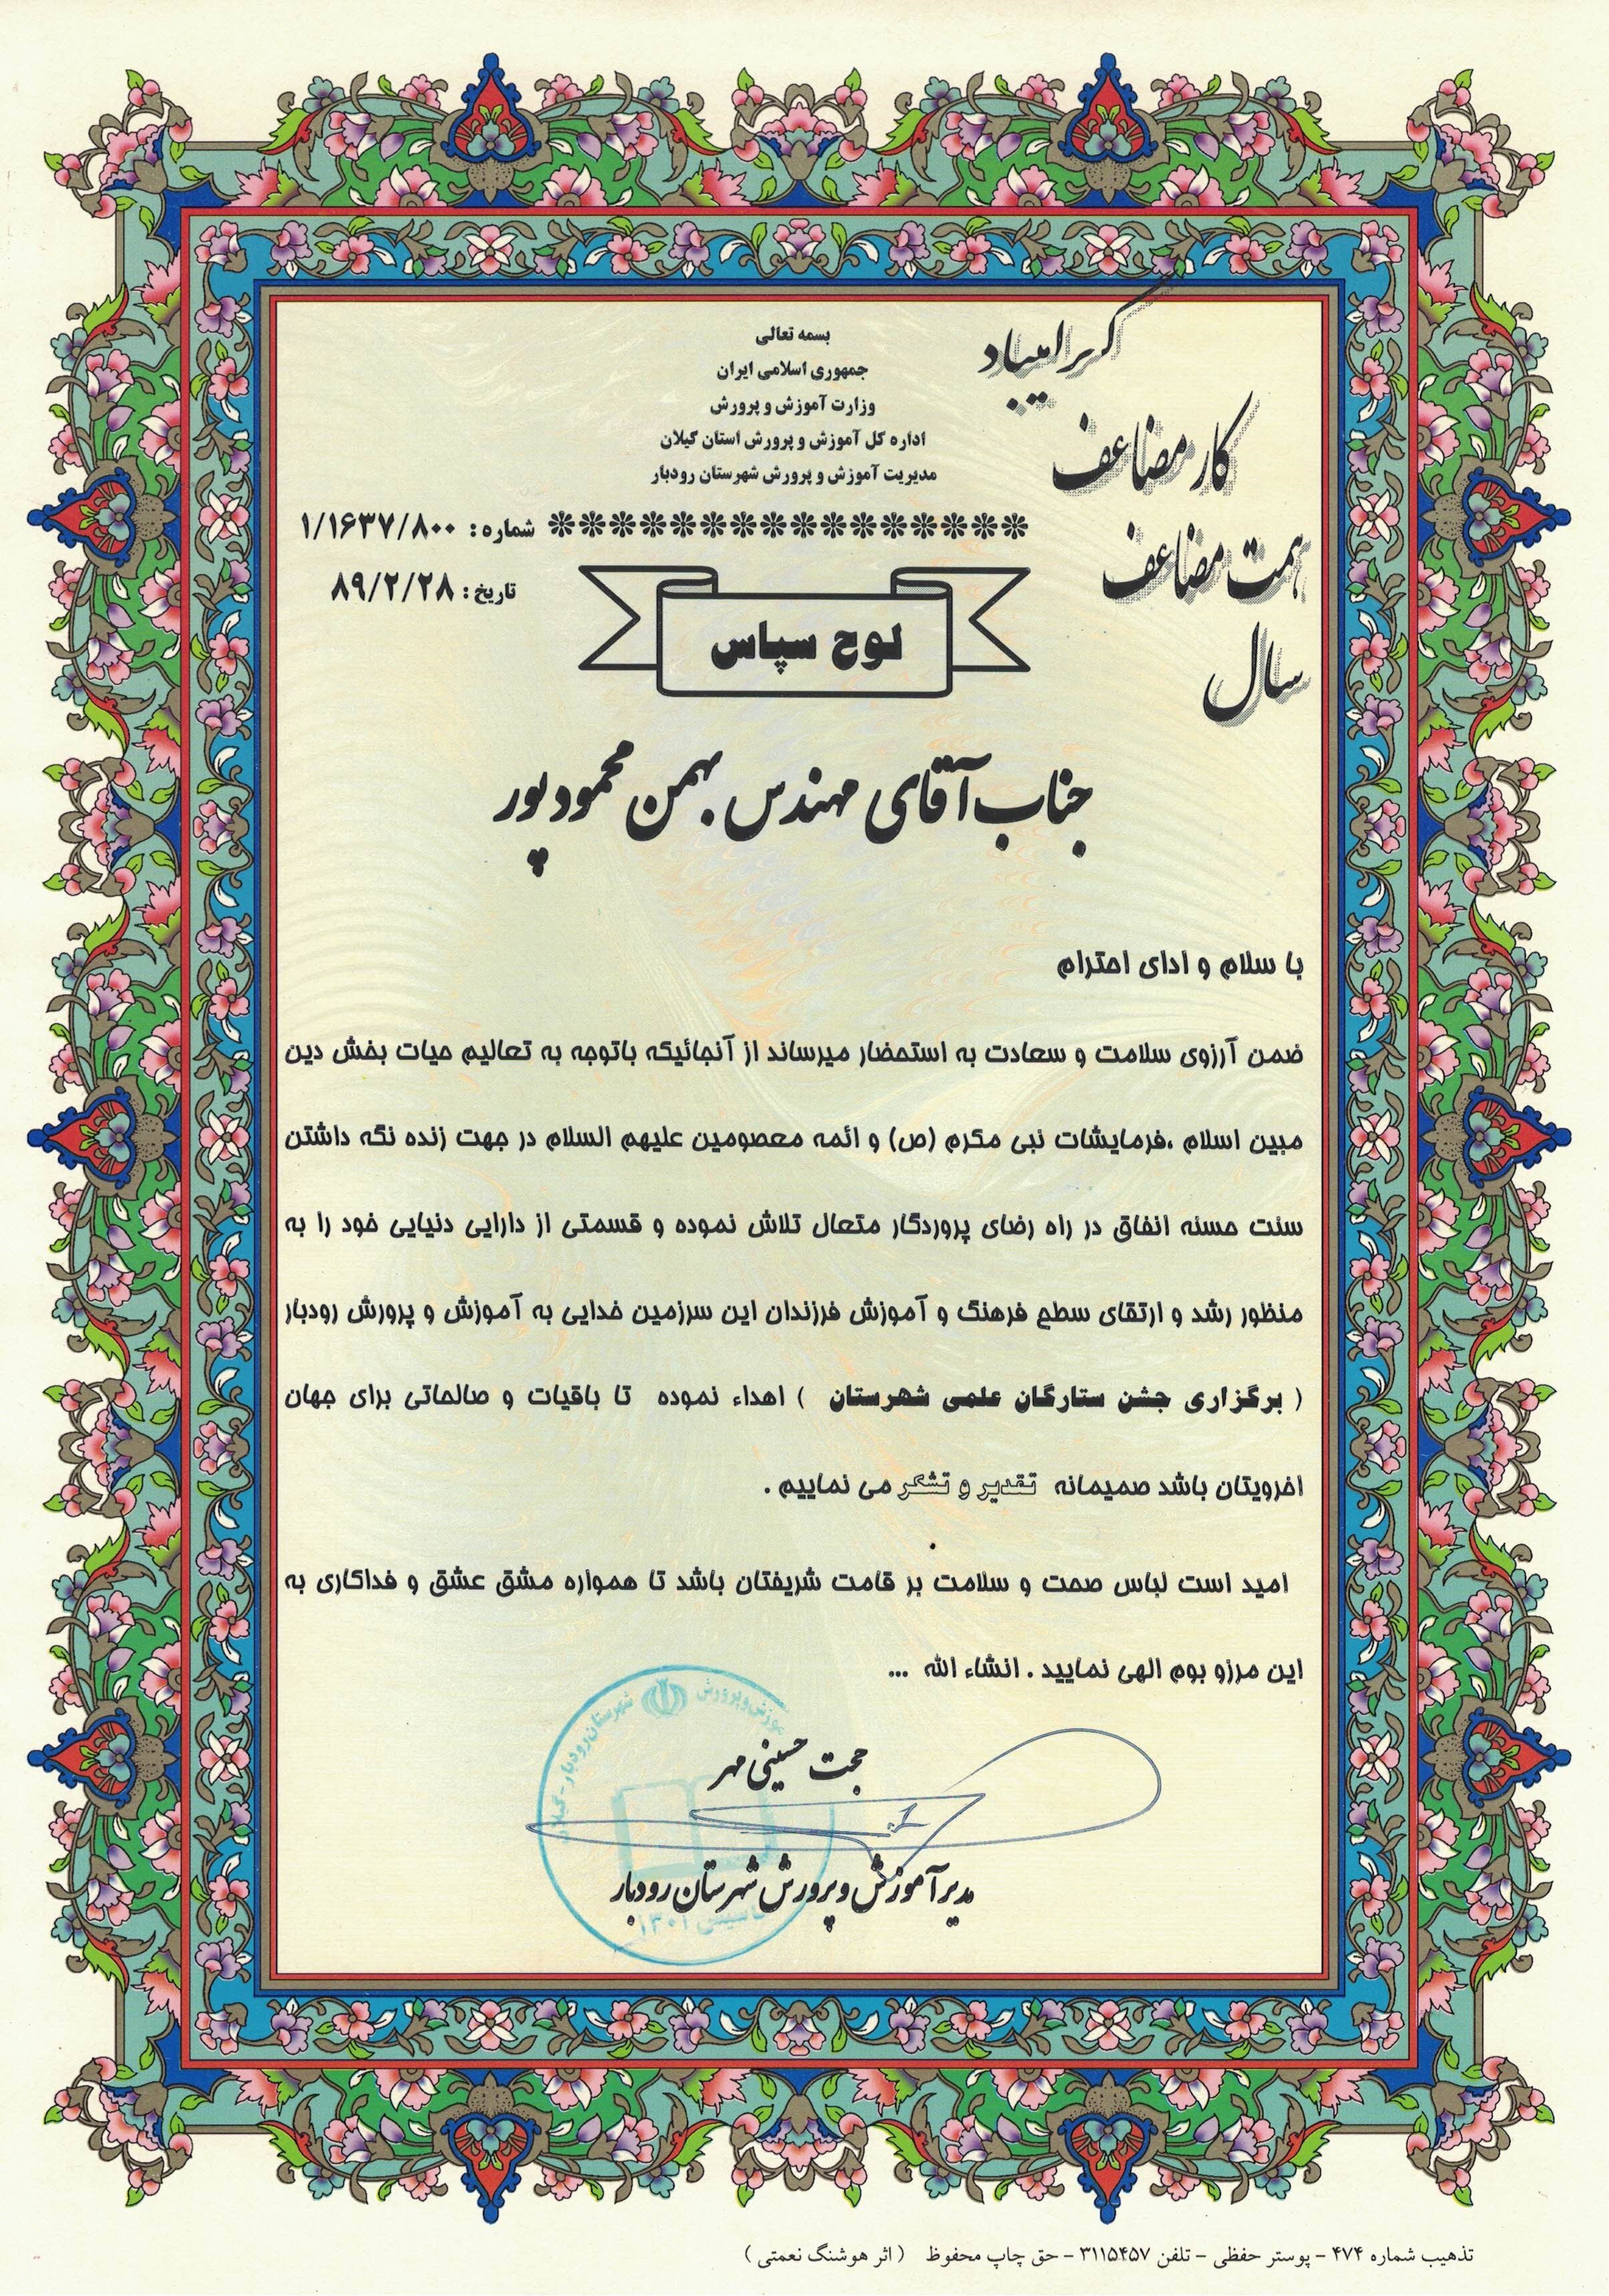 بسمه تعالی
جمهوری اسلامی ایران
وزارت آموزش و پرورش
اداره کل آموزش و پرورش استان گیلان
مدیریت آموزش و پرورش شهرستان رودبار
سال
همت مضاعف
کار مضاعف
گرامیباد
شماره : ۱/۱۶۳۷/۸۰۰
تاریخ : ۸۹/۲/۲۸
لوح سپاس
جناب آقای مهندس بهمن محمودپور
با سلام و ادای احترام
ضمن آرزوی سلامت و سعادت به استحضار میرساند از آنجائیکه باتوجه به تعالیم حیات بخش دین
مبین اسلام ،فرمایشات نبی مکرم (ص) و ائمه معصومین علیهم السلام در جهت زنده نگه داشتن
سنت حسنه انفاق در راه رضای پروردگار متعال تلاش نموده و قسمتی از دارایی دنیایی خود را به
منظور رشد و ارتقای سطح فرهنگ و آموزش فرزندان این سرزمین خدایی به آموزش و پرورش رودبار
( برگزاری جشن ستارگان علمی شهرستان ) اهداء نموده تا باقیات و صالحاتی برای جهان
اخرویتان باشد صمیمانه تقدیر و تشکر می نماییم .
امید است لباس صحت و سلامت بر قامت شریفتان باشد تا همواره مشق عشق و فداکاری به
این مرزو بوم الهی نمایید . انشاء الله ...
حجت حسینی مهر
مدیر آموزش و پرورش شهرستان رودبار
شهرستان رودبار - گیلان
تاسیس ۱۳۰۱
تذهیب شماره ۴۷۴ - پوستر حفظی - تلفن ۳۱۱۵۴۵۷ - حق چاپ محفوظ ( اثر هوشنگ نعمتی )